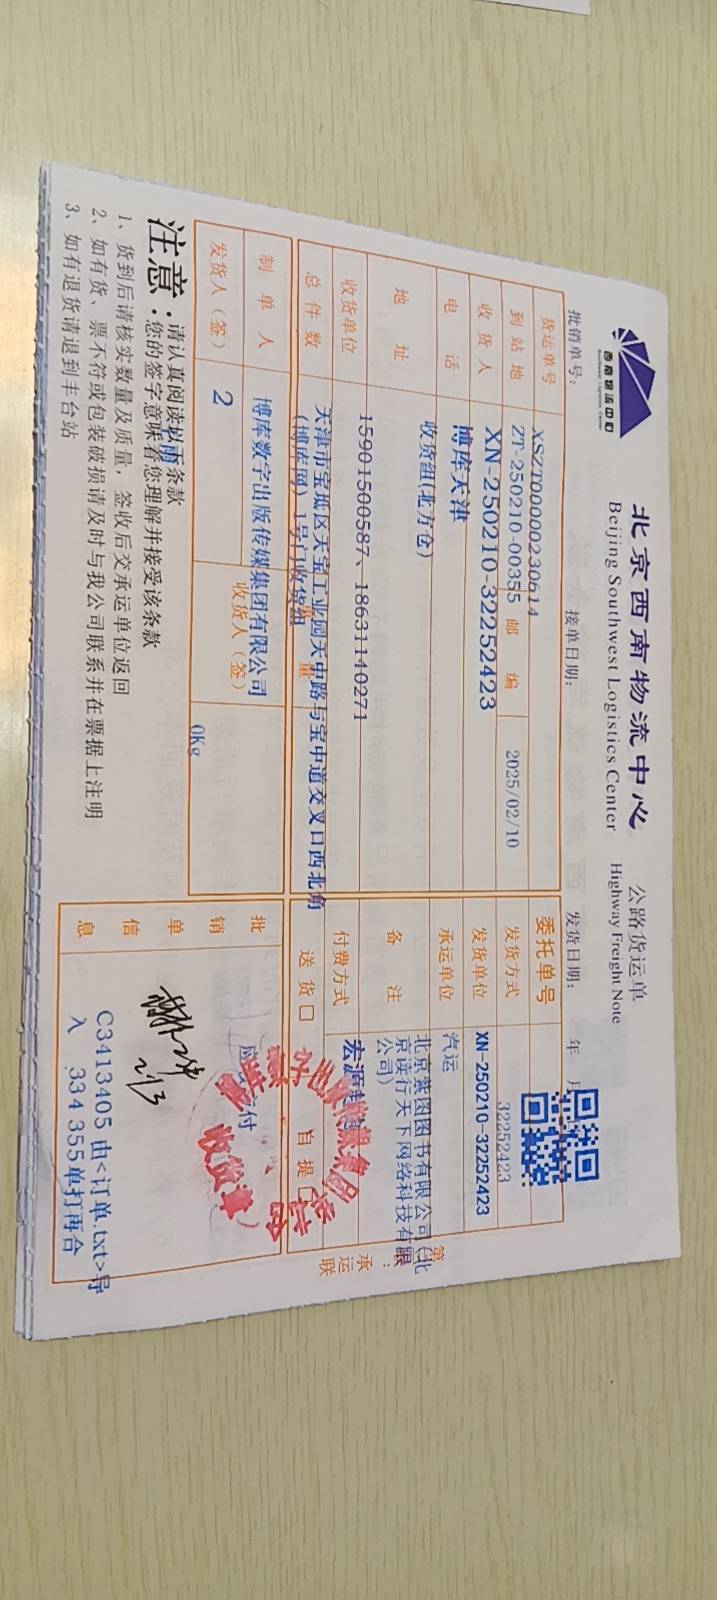 西南物流中心
Southwest Logistics Center
北京西南物流中心
Beijing Southwest Logistics Center
公路货运单
Highway Freight Note
批销单号：
接单日期：
发货日期： 年 月
XSZT00000230614
货运单号
ZT-250210-00355
邮编
2025/02/10
委托单号
32252423
到站地
XN-250210-32252423
发货方式
XN-250210-32252423
收货人
博库天津
发货单位
汽运
电话
收货组(北方仓)
承运单位
北京紫图图书有限公司(北
京读行天下网络科技有限
公司)
地址
15901500587、18631140271
备注
宏源
收货单位
天津市宝坻区天宝工业园天中路与宝中道交叉口西北角
(博库网) 1号门收货组
付费方式
总件数
量
送货□
自提
制单人
博库数字出版传媒集团有限公司
收货人（签）
发货人（签）
2
0Kg
批销单信息
付
收货章
2/3
C3413405 由<订单.txt>导
入 334 355单打再合
第
：
承运联
注意：
请认真阅读以下条款
您的签字意味着您理解并接受该条款
1、货到后请核实数量及质量，签收后交承运单位返回
2、如有货、票不符或包装破损请及时与我公司联系并在票据上注明
3、如有退货请退到丰台站